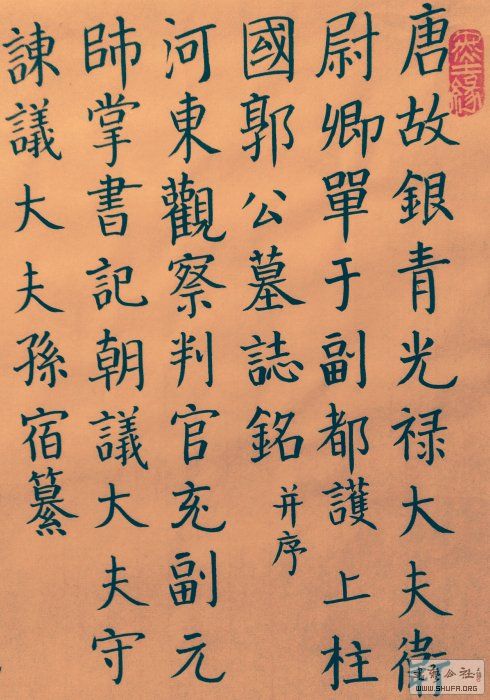 唐故銀青光禄大夫衛
尉卿單于副都護上柱
國郭公墓誌銘并序
河東觀察判官充副元
帥掌書記朝議大夫守
諫議大夫孫宿纂
WWW.SHUFA.ORG